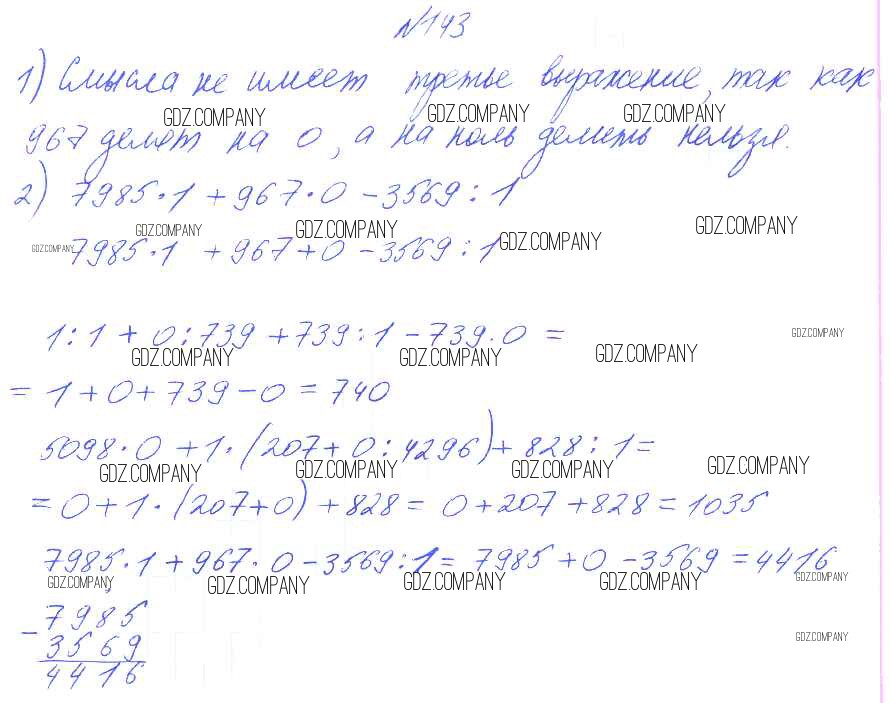 №143
1) Смысла не имеет третье выражение, так как
GDZ.COMPANY GDZ.COMPANY GDZ.COMPANY
967 делят на 0, а на ноль делить нельзя.
2) 7985·1 + 967·0 - 3569 : 1
GDZ.COMPANY GDZ.COMPANY GDZ.COMPANY GDZ.COMPANY
GDZ.COMPANY 7985·1 + 967+0 - 3569 : 1
1 : 1 + 0 : 739 + 739 : 1 - 739·0 =
GDZ.COMPANY GDZ.COMPANY GDZ.COMPANY GDZ.COMPANY
= 1 + 0 + 739 - 0 = 740
5098·0 + 1·(207+0 : 4296) + 828 : 1 =
GDZ.COMPANY GDZ.COMPANY GDZ.COMPANY GDZ.COMPANY
= 0 + 1·(207+0) + 828 = 0 + 207 + 828 = 1035
7985·1 + 967·0 - 3569 : 1 = 7985 + 0 - 3569 = 4416
GDZ.COMPANY GDZ.COMPANY GDZ.COMPANY GDZ.COMPANY GDZ.COMPANY
- 7985
3569
GDZ.COMPANY
4416